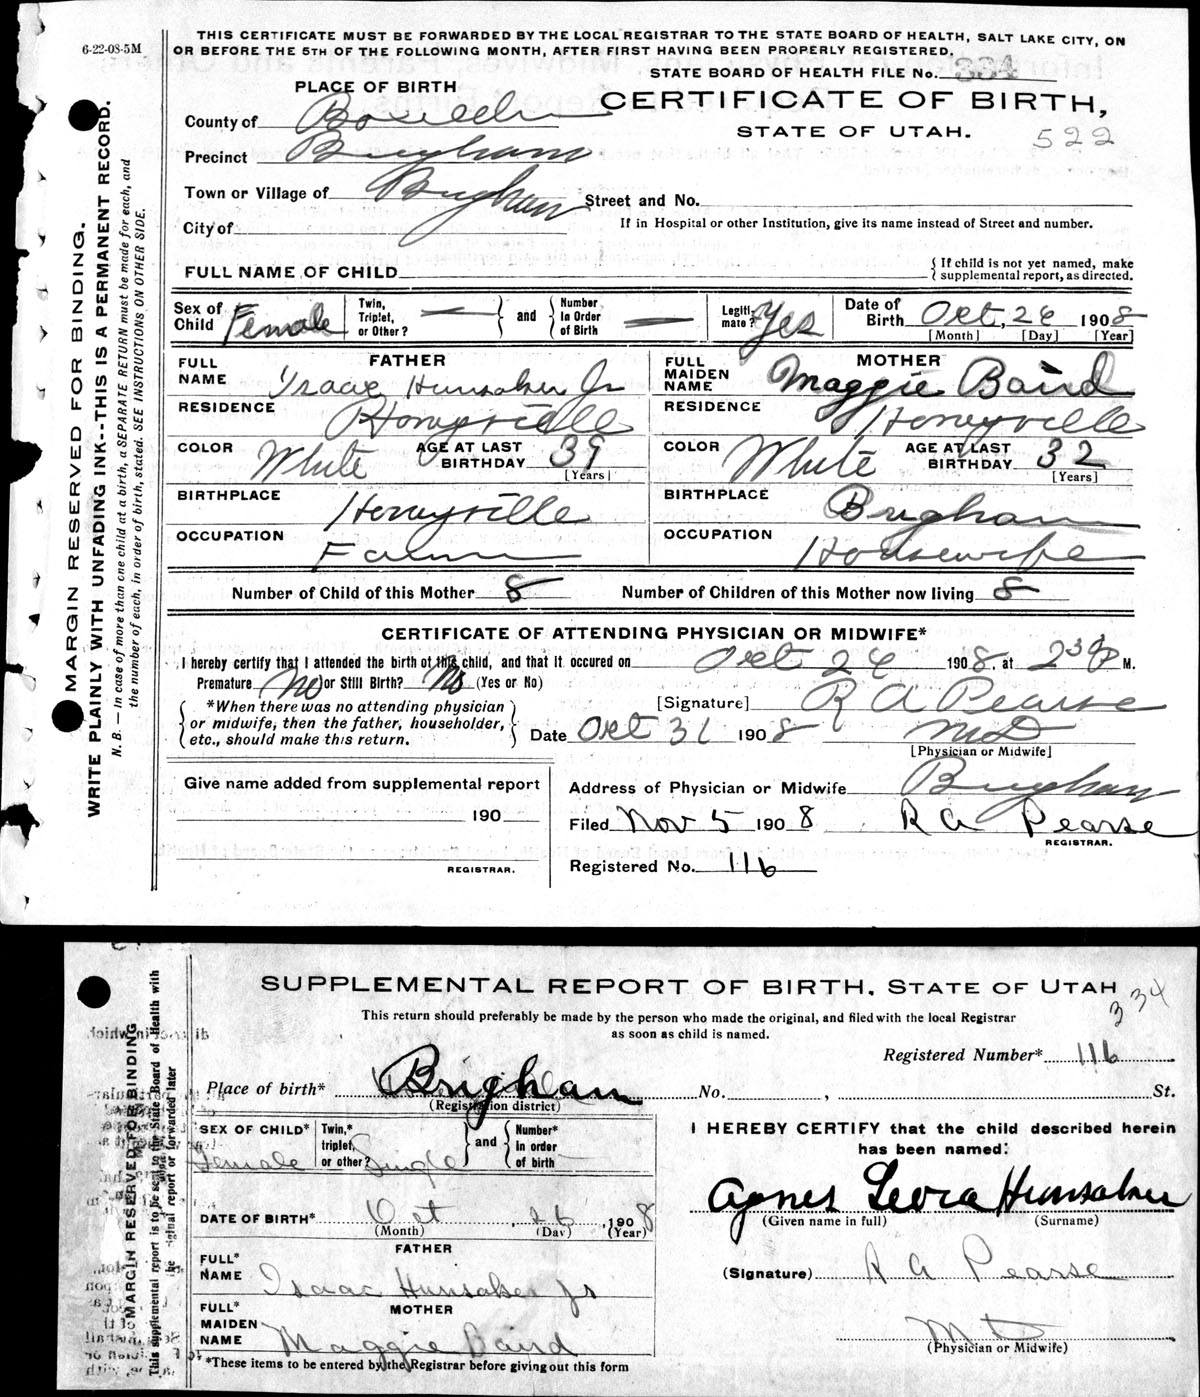 6-22-08-5M
THIS CERTIFICATE MUST BE FORWARDED BY THE LOCAL REGISTRAR TO THE STATE BOARD OF HEALTH, SALT LAKE CITY, ON
OR BEFORE THE 5TH OF THE FOLLOWING MONTH, AFTER FIRST HAVING BEEN PROPERLY REGISTERED.
STATE BOARD OF HEALTH FILE No. 334
PLACE OF BIRTH
CERTIFICATE OF BIRTH,
STATE OF UTAH.
522
County of Boxelder
Precinct Brigham
Town or Village of Brigham
Street and No.
City of
If in Hospital or other Institution, give its name instead of Street and number.
FULL NAME OF CHILD
{ If child is not yet named, make
supplemental report, as directed.
Sex of Child Female
Twin, Triplet, or Other?
and
Number In Order of Birth
Legitimate? Yes
Date of Birth Oct, 26 1908
[Month] [Day] [Year]
FATHER
FULL NAME Isaac Hunsaker Jr
RESIDENCE Honeyville
COLOR White AGE AT LAST BIRTHDAY 39
[Years]
BIRTHPLACE Honeyville
OCCUPATION Farmer
MOTHER
FULL MAIDEN NAME Maggie Baird
RESIDENCE Honeyville
COLOR White AGE AT LAST BIRTHDAY 32
[Years]
BIRTHPLACE Brigham
OCCUPATION Housewife
Number of Child of this Mother 8 Number of Children of this Mother now living 8
CERTIFICATE OF ATTENDING PHYSICIAN OR MIDWIFE*
I hereby certify that I attended the birth of this child, and that it occured on Oct 26 1908 at 2 30 P M.
Premature No or Still Birth? No (Yes or No)
*When there was no attending physician
or midwife, then the father, householder,
etc., should make this return.
[Signature] R A Pearse
Date Oct 31 1908 MD
[Physician or Midwife]
Give name added from supplemental report
190
REGISTRAR.
Address of Physician or Midwife Brigham
Filed Nov 5 1908 R A Pearse
REGISTRAR.
Registered No. 116
MARGIN RESERVED FOR BINDING.
WRITE PLAINLY WITH UNFADING INK--THIS IS A PERMANENT RECORD.
N. B. — In case of more than one child at a birth, a SEPARATE RETURN must be made for each, and
the number of each, in order of birth, stated. SEE INSTRUCTIONS ON OTHER SIDE.
SUPPLEMENTAL REPORT OF BIRTH, STATE OF UTAH
334
This return should preferably be made by the person who made the original, and filed with the local Registrar
as soon as child is named.
Registered Number* 116
Place of birth* Brigham No. , St.
(Registration district)
SEX OF CHILD* Female
Twin,* triplet, or other? Single
and
Number* In order of birth
DATE OF BIRTH* Oct, 26, 1908
(Month) (Day) (Year)
FATHER
FULL* NAME Isaac Hunsaker Jr
MOTHER
FULL* MAIDEN NAME Maggie Baird
*These items to be entered by the Registrar before giving out this form
I HEREBY CERTIFY that the child described herein
has been named:
Agnes Leora Hunsaker
(Given name in full) (Surname)
(Signature) R A Pearse
MD
(Physician or Midwife)
MARGIN RESERVED FOR BINDING
This supplemental report is to be sent to the State Board of Health with
the original report or forwarded later